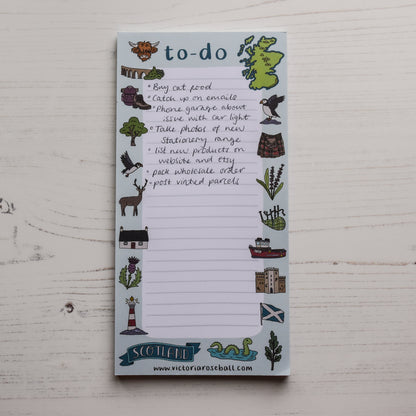 to-do
• Buy cat food
• Catch up on emails
• Phone garage about
issue with car light
• Take photos of new
stationery range
• list new products on
website and Etsy
• pack wholesale order
• post vinted parcels
SCOTLAND
www.victoriaroseball.com